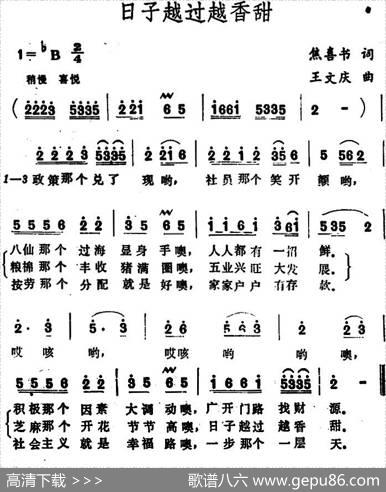 日子越过越香甜
1=♭B 2/4
稍慢 喜悦
焦喜书 词
王文庆 曲
(2223 5335 2·21 65 1661 5335 2 - )
2 2 2 3 5335 2 216 2 2 1 2 356 5 562
1—3政策那个兑了 现哟, 社员那个笑开 颜哟,
5 5 5 6 2 2 2 1 6 5 1 1 6 1 3 61 5
八仙那个 过海 显身 手噢, 人人都有 一招 鲜。
粮棉那个 丰收 猪满 圈噢, 五业兴旺 大发 展。
按劳那个 分配 就是 好噢, 家家户户 有存 款。
2· 3 5· 3 2 2 6 5·3 5 6 3
哎 咳 哟, 哎咳 哟 哟 噢,
5 5 5 6 2 2 2 1 6 5 1 6 6 1 5335 2
积极那个 因素 大调 动噢, 广开门路 找财 源。
芝麻那个 开花 节节 高噢, 日子越过 越香 甜。
社会主义 就是 幸福 路噢, 一步那个 一层 天。
高清下载 >>> 歌谱八六 www.gepu86.com